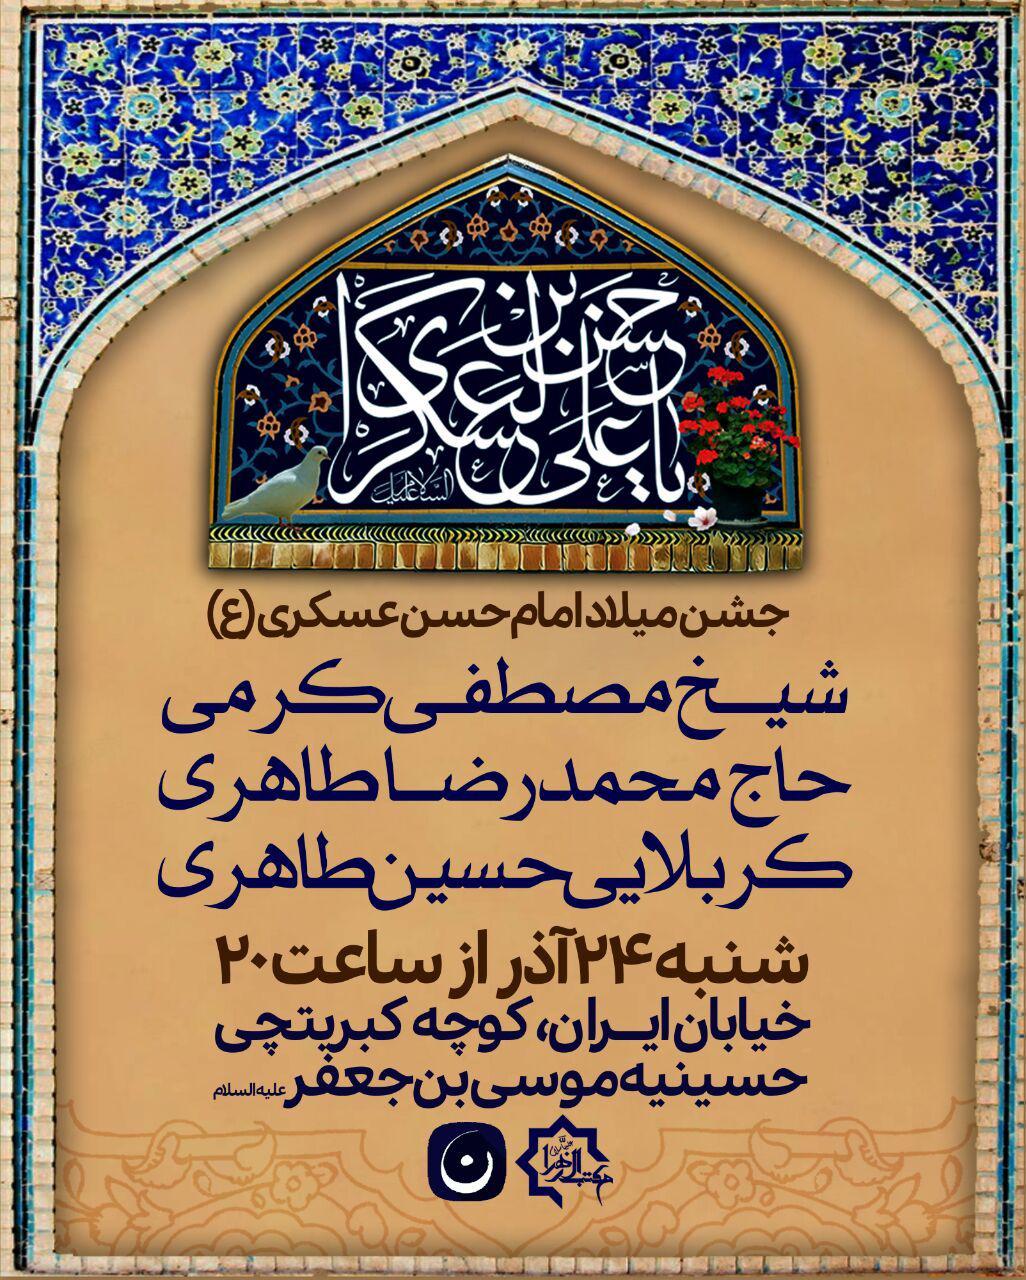 یا حسن بن علی العسکری
السلام علیک
جشن میلاد امام حسن عسکری (ع)
شیخ مصطفی کرمی
حاج محمدرضا طاهری
کربلایی حسین طاهری
شنبه ۲۴ آذر از ساعت ۲۰
خیابان ایران، کوچه کبریتچی
حسینیه موسی بن جعفر علیه السلام
مکتب الزهرا